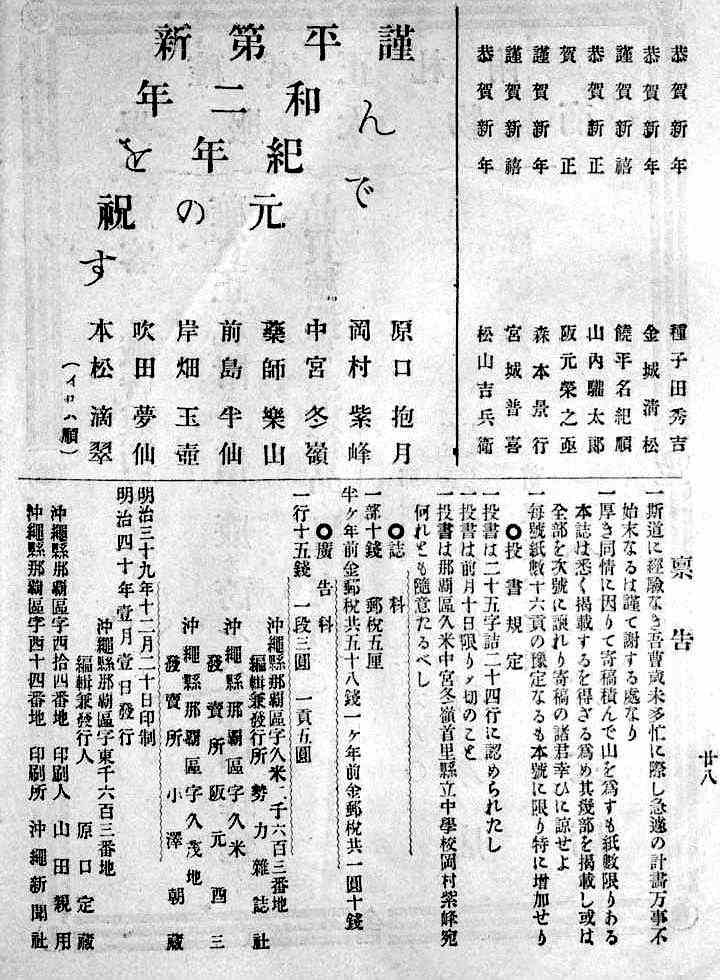 恭賀新年 種子田秀吉
恭賀新年 金城清松
謹賀新禧 饒平名紀順
恭賀新正 山內驌太郎
賀正 阪元榮之亟
謹賀新年 森本景行
謹賀新禧 宮城普喜
恭賀新年 松山吉兵衛
謹んで
平和紀元
第二年の
新年を祝す
原口抱月
岡村紫峰
中宮冬嶺
藥師樂山
前島半仙
岸畑玉壺
吹田夢仙
本松滴翠
(イロハ順)
廿八
稟告
一斯道に經驗なき吾曹歲末多忙に際し急遽の計畫万事不
始末なるは謹て謝する處なり
一厚き同情に因りて寄稿積んで山を爲すも紙數限りある
本誌は悉く揭載するを得ざる爲め其幾部を揭載し或は
全部を次號に讓れり寄稿の諸君幸ひに諒せよ
一每號紙數十六頁の豫定なるも本號に限り特に增加せり
◎投書規定
一投書は二十五字詰二十四行に認められたし
一投書は前月十日限り〆切のこと
一投書は那覇區久米中宮冬嶺首里縣立中學校岡村紫峰宛
何れとも隨意たるべし
◎誌料
一部十錢 郵稅五厘
半ヶ年前金郵稅共五十八錢一ヶ年前金郵稅共一圓十錢
◎廣告料
一行十五錢 一段三圓 一頁五圓
沖繩縣那覇區字久米二千六百三番地
編輯兼發行所 勢力雜誌社
沖繩縣那覇區字久米
發賣所 阪元酉三
沖繩縣那覇區字久茂地
發賣所 小澤朝藏
明治三十九年十二月二十日印制
明治四十年壹月壹日發行
沖繩縣那覇區字東千六百三番地
編輯兼發行人 原口定藏
沖繩縣那覇區字西拾四番地 印刷人 山田親用
沖繩縣那覇區字西十四番地 印刷所 沖繩新聞社